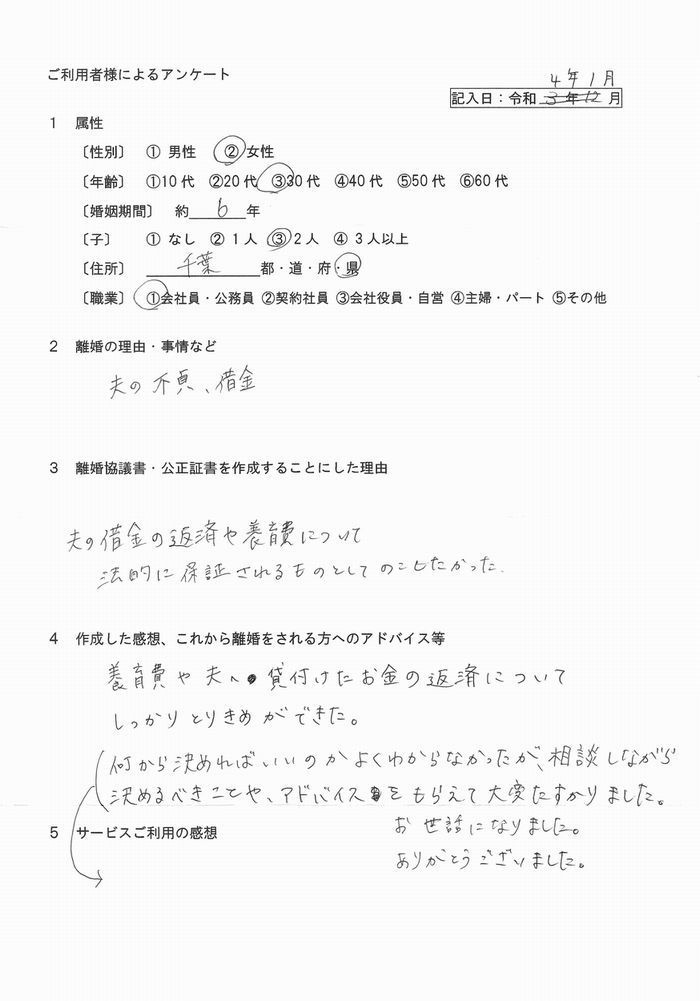 ご利用者様によるアンケート
4年1月
記入日：令和 3年12月
1 属性
〔性別〕 ① 男性 ②女性
〔年齢〕 ①10代 ②20代 ③30代 ④40代 ⑤50代 ⑥60代
〔婚姻期間〕 約 6 年
〔子〕 ① なし ② 1人 ③ 2人 ④ 3人以上
〔住所〕 千葉 都・道・府・県
〔職業〕 ①会社員・公務員 ②契約社員 ③会社役員・自営 ④主婦・パート ⑤その他
2 離婚の理由・事情など
夫の不貞、借金
3 離婚協議書・公正証書を作成することにした理由
夫の借金の返済や養育費について
法的に保証されるものとしてのこしたかった。
4 作成した感想、これから離婚をされる方へのアドバイス等
養育費や夫へ貸付けたお金の返済について
しっかりとりきめができた。
何から決めればいいのかよくわからなかったが、相談しながら
決めるべきことや、アドバイスをもらえて大変たすかりました。
お世話になりました。
5 サービスご利用の感想
ありがとうございました。